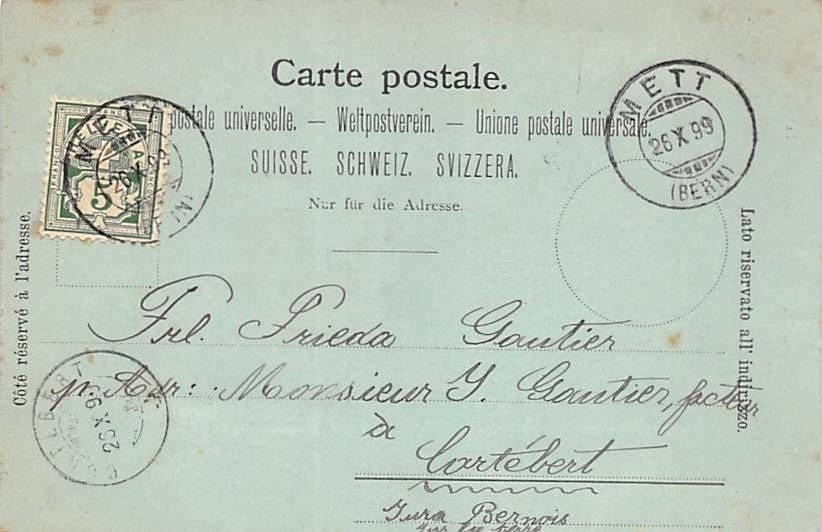 Carte postale.
postale universelle. — Weltpostverein. — Unione postale universale.
SUISSE. SCHWEIZ. SVIZZERA.
Nur für die Adresse.
Côté réservé à l'adresse.
Lato riservato all' indirizzo.
METT
26 X 99
(BERN)
5
METT
26 X 99
Frl. Frieda Gautier
p. Adr: Monsieur J. Gautier, facteur
à
Cortébert
Jura Bernois
CORTÉBERT
25 X 99